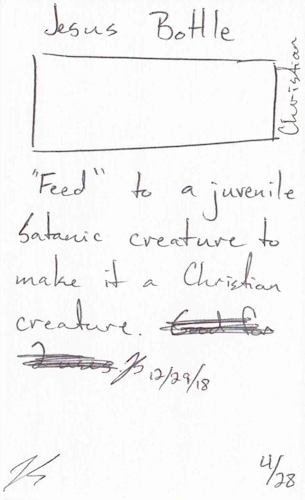 Jesus Bottle
Christian
"Feed" to a juvenile
Satanic creature to
make it a Christian
creature. Good for
12/29/18
4/28